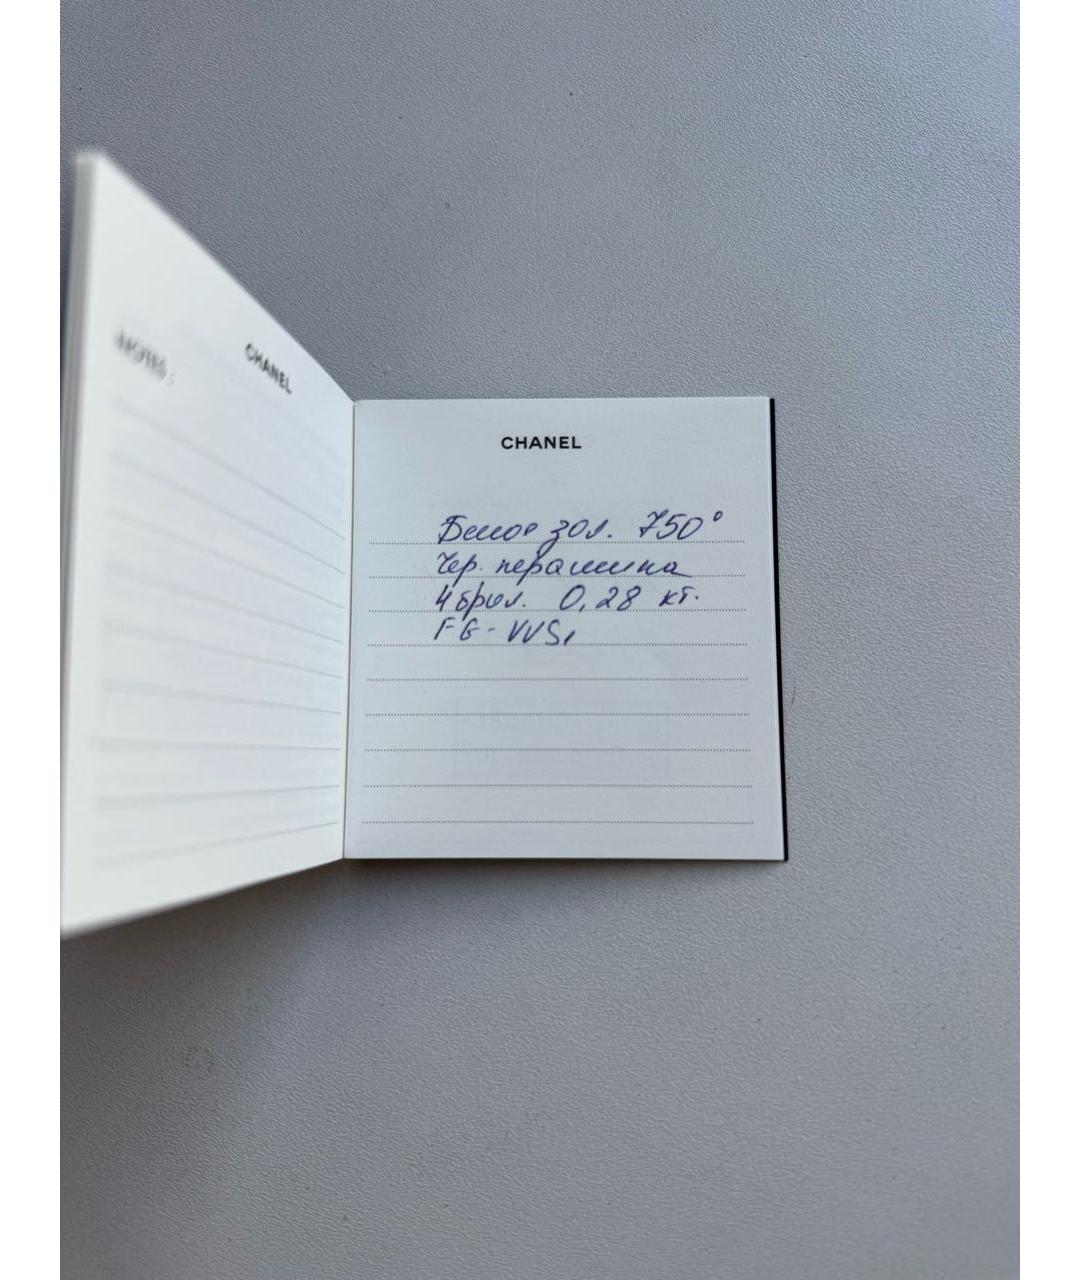 NOTES:
CHANEL
CHANEL
Белое зол. 750°
Чер. керамика
4 брил. 0,28 кт.
FG - VVS1